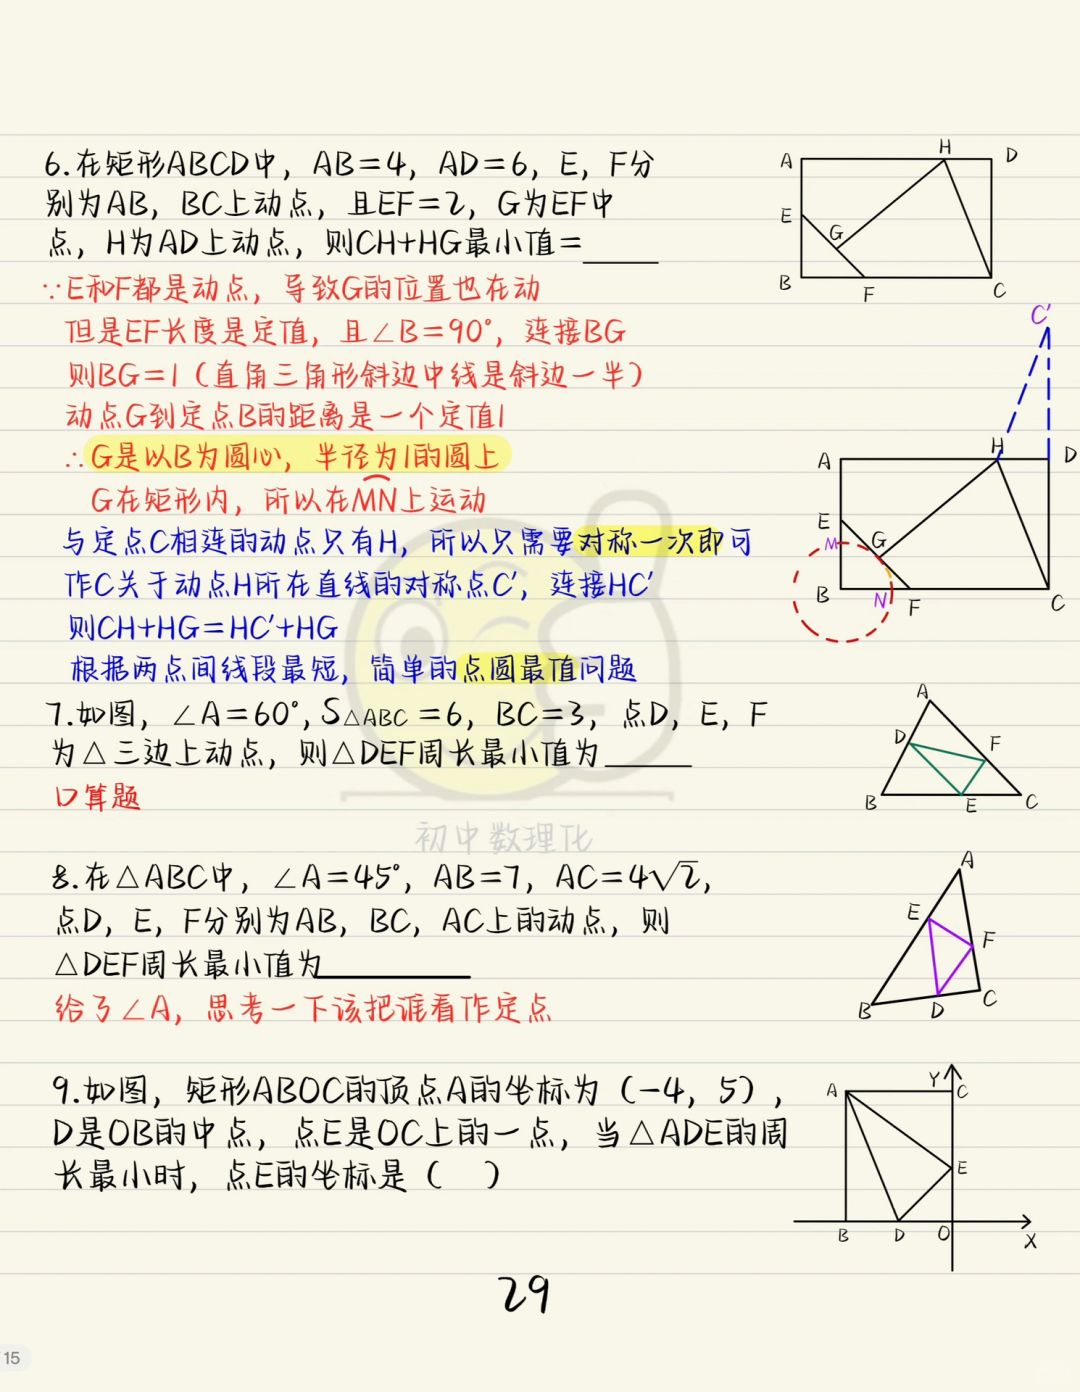 6.在矩形ABCD中，AB=4，AD=6，E，F分
别为AB，BC上动点，且EF=2，G为EF中
点，H为AD上动点，则CH+HG最小值=____
A H D
E G
B F C
∵E和F都是动点，导致G的位置也在动
但是EF长度是定值，且∠B=90°，连接BG
则BG=1（直角三角形斜边中线是斜边一半）
动点G到定点B的距离是一个定值1
∴G是以B为圆心，半径为1的圆上
G在矩形内，所以在MN上运动
C′
A H D
E M G
B N F C
与定点C相连的动点只有H，所以只需要对称一次即可
作C关于动点H所在直线的对称点C′，连接HC′
则CH+HG=HC′+HG
根据两点间线段最短，简单的点圆最值问题
7.如图，∠A=60°，S△ABC=6，BC=3，点D，E，F
为△三边上动点，则△DEF周长最小值为____
口算题
A
D F
B E C
初中数理化
8.在△ABC中，∠A=45°，AB=7，AC=4√2，
点D，E，F分别为AB，BC，AC上的动点，则
△DEF周长最小值为____
给了∠A，思考一下该把谁看作定点
A
E F
B D C
9.如图，矩形ABOC的顶点A的坐标为（-4，5），
D是OB的中点，点E是OC上的一点，当△ADE的周
长最小时，点E的坐标是（ ）
A Y C
E
B D O X
29
15